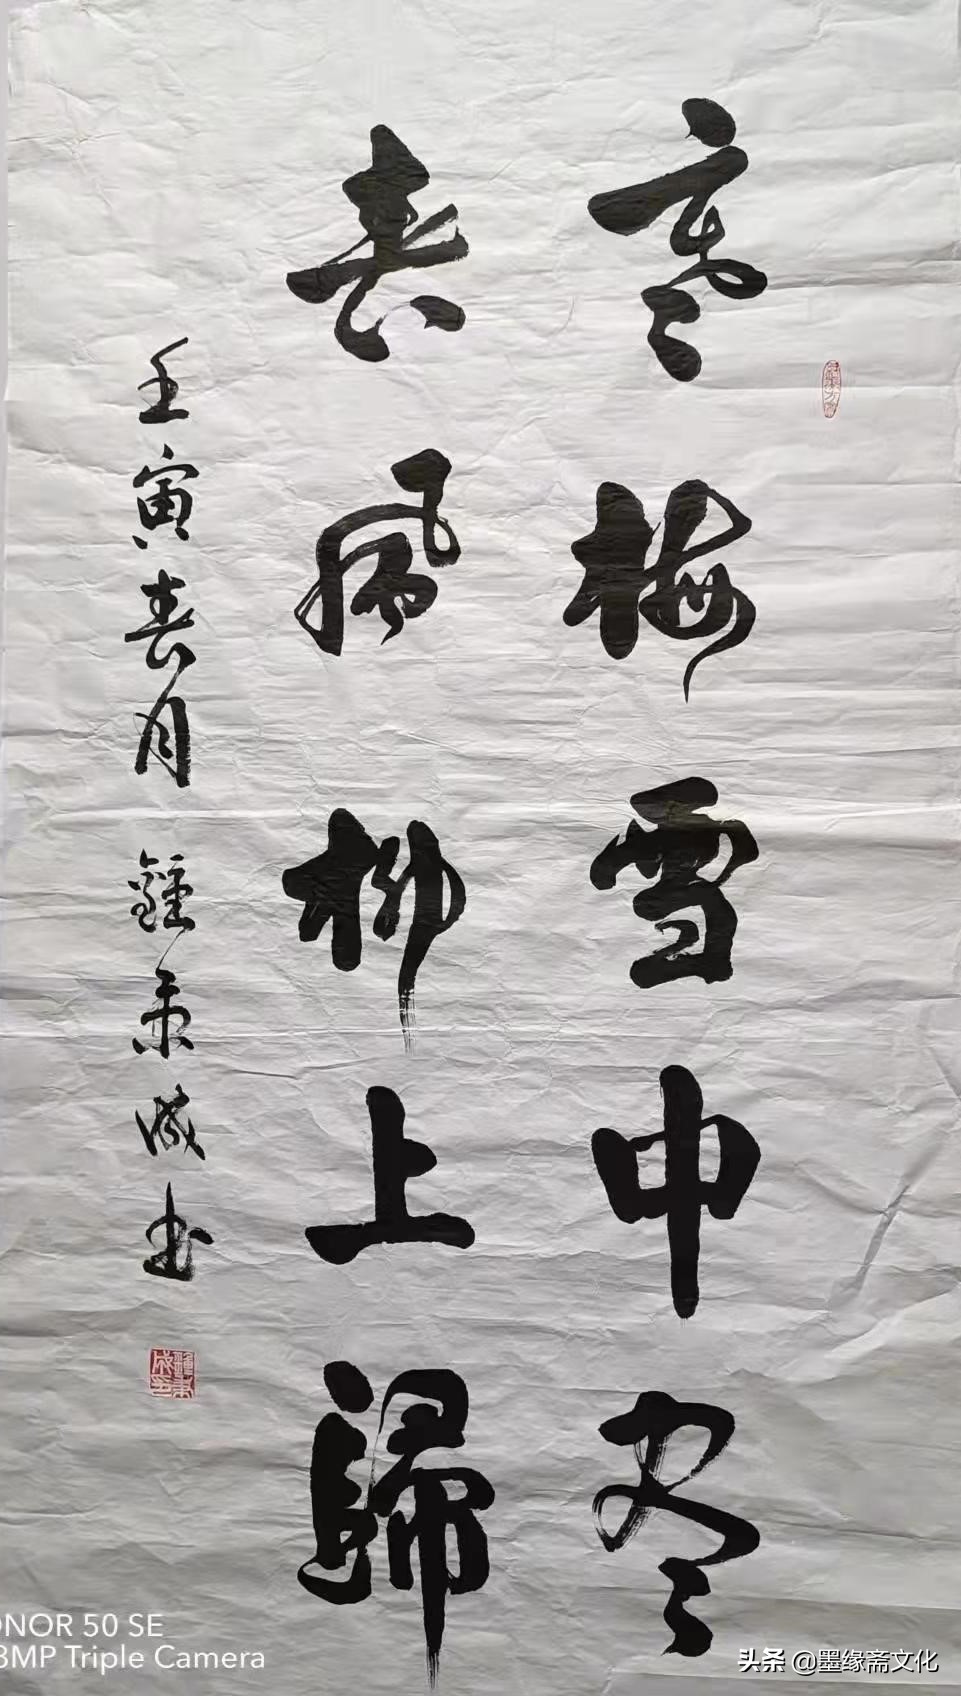 寒梅雪中尽
春风柳上歸
壬寅春月 鍾秉成书
ONOR 50 SE
8MP Triple Camera
头条 @墨缘斋文化